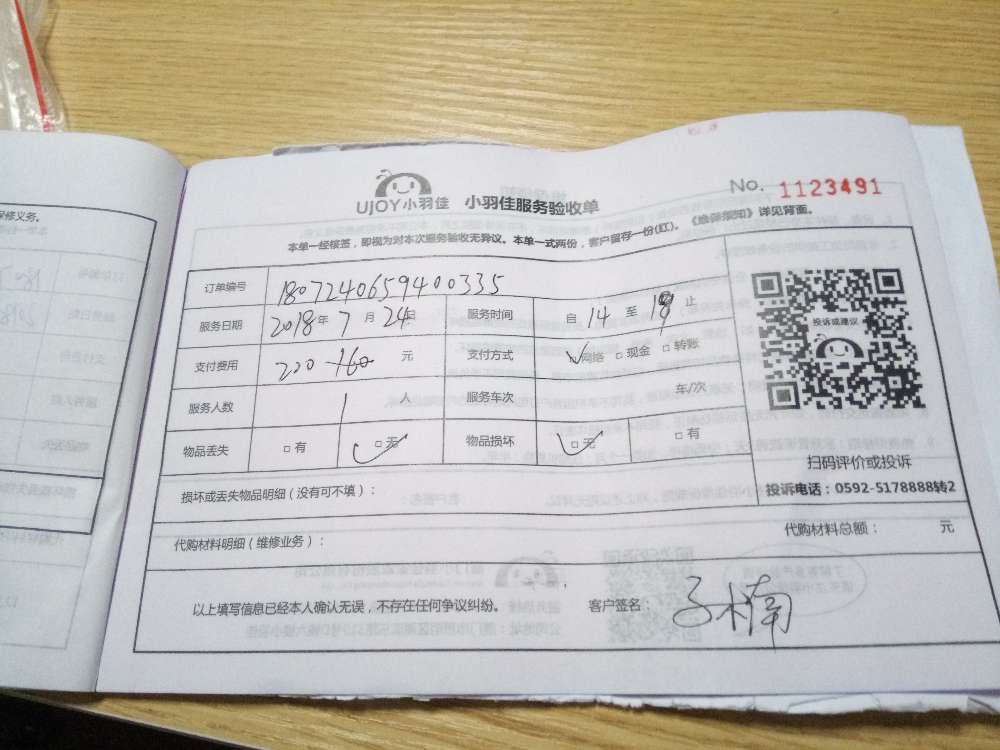 UJOY小羽佳 小羽佳服务验收单 No. 1123491
本单一经核签，即视为对本次服务验收无异议。本单一式两份，客户留存一份(红)。《维修须知》详见背面。
订单编号 1807240659400335
服务日期 2018年 7月 24日 服务时间 自 14 至 18 止
支付费用 220-160 元 支付方式 □网络 □现金 □转账
服务人数 1 人 服务车次 年/次
物品丢失 □有 □无 物品损坏 □无 □有
投诉或建议
扫码评价或投诉
投诉电话：0592-5178888转2
损坏或丢失物品明细（没有可不填）：
代购材料明细（维修业务）： 代购材料总额： 元
以上填写信息已经本人确认无误，不存在任何争议纠纷。 客户签名： 子楠
修义务。